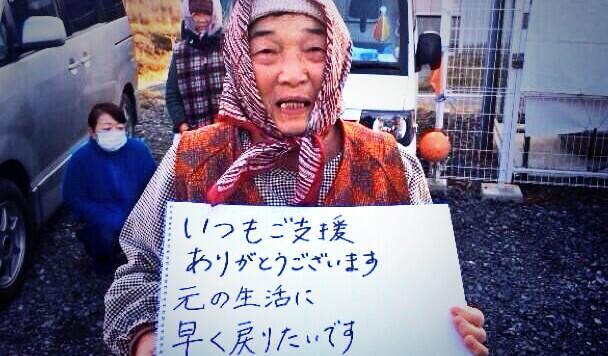 いつもご支援
ありがとうございます
元の生活に
早く戻りたいです